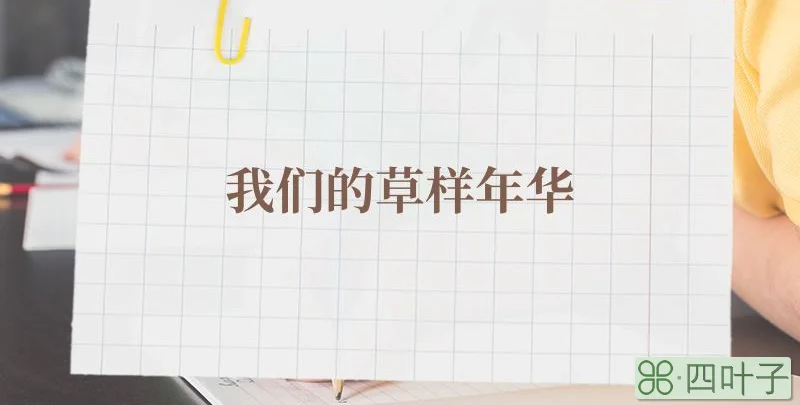 我们的草样年华
四叶子